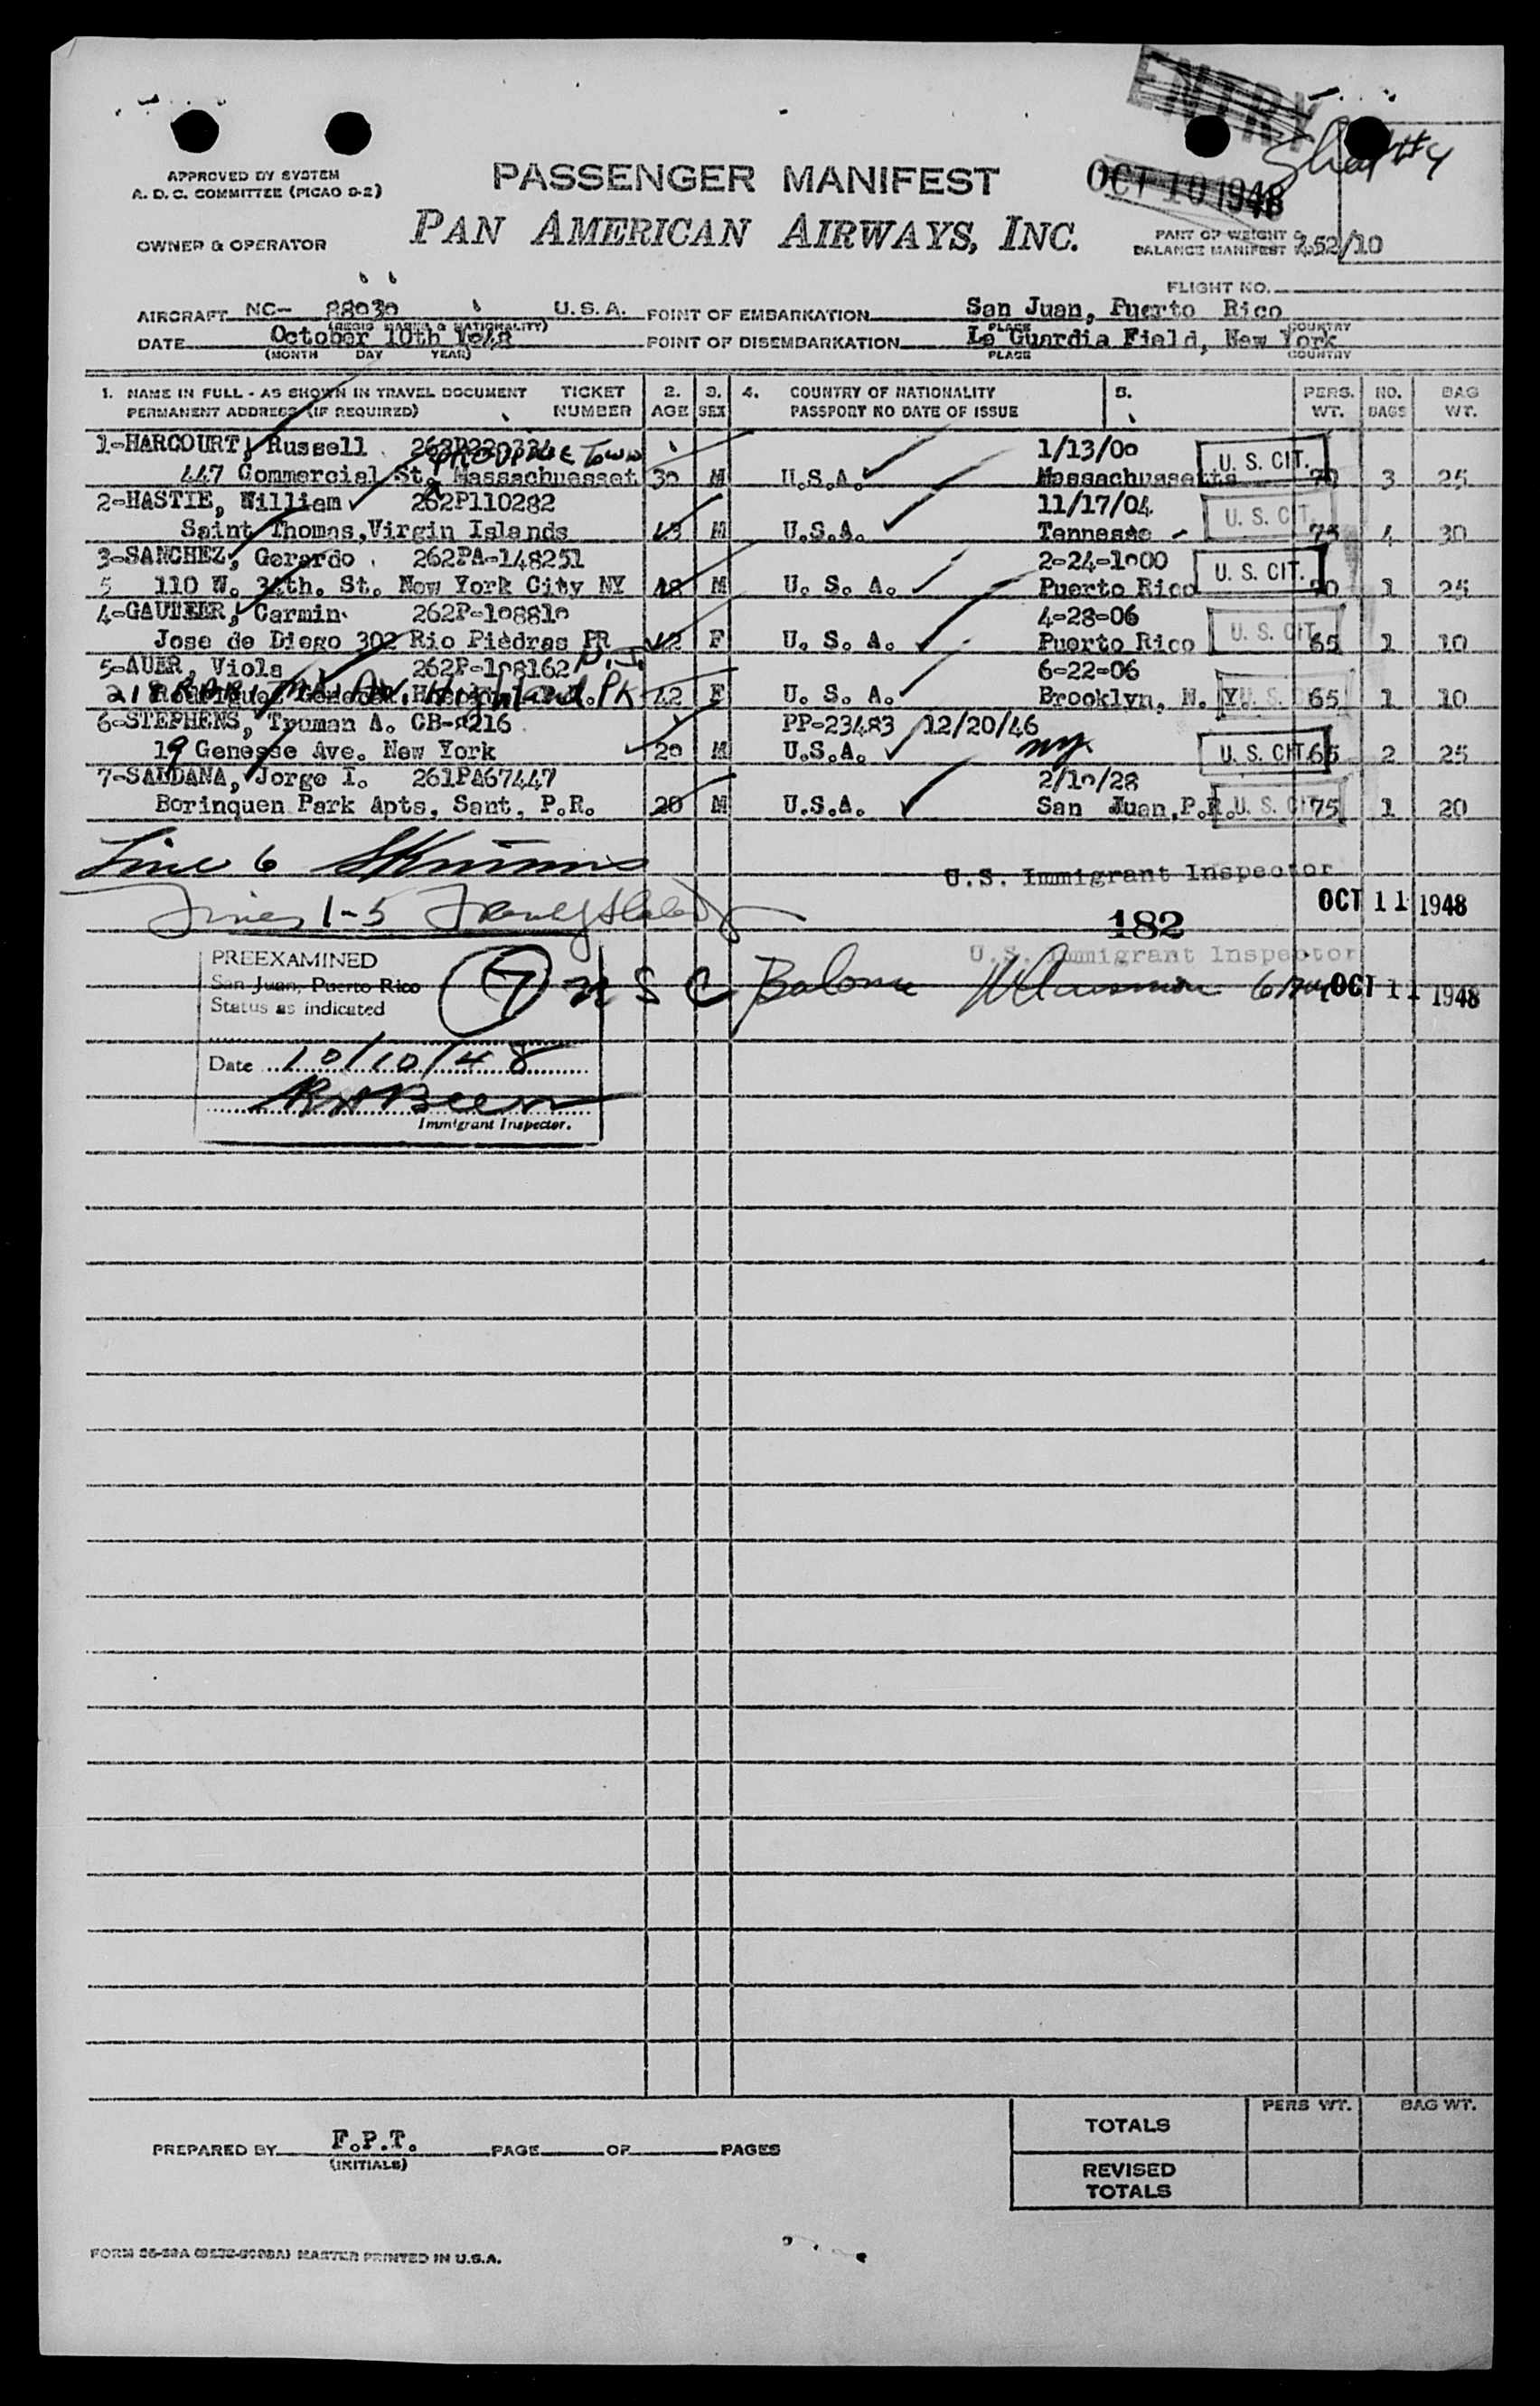 ENTRY
Sheet #4
OCT 10 1948
APPROVED BY SYSTEM
A. D. C. COMMITTEE (PICAO 9-2)
PASSENGER MANIFEST
OWNER & OPERATOR
PAN AMERICAN AIRWAYS, INC.
PART OF WEIGHT &
BALANCE MANIFEST NO. 252/10
FLIGHT NO.
AIRCRAFT NC- 88030 U.S.A. POINT OF EMBARKATION San Juan, Puerto Rico
(REGIS MARKS & NATIONALITY) PLACE COUNTRY
DATE October 10th 1948 POINT OF DISEMBARKATION La Guardia Field, New York
(MONTH DAY YEAR) PLACE COUNTRY
1. NAME IN FULL - AS SHOWN IN TRAVEL DOCUMENT TICKET 2. 3. 4. COUNTRY OF NATIONALITY 5. PERS. NO. BAG
PERMANENT ADDRESS (IF REQUIRED) NUMBER AGE SEX PASSPORT NO DATE OF ISSUE WT. BAGS WT.
1-HARCOURT, Russell 1/13/00
447 Commercial St. Massachuesset M U.S.A. Massachuasetts U. S. CIT. 70 3 25
2-HASTIE, William 262P110282 11/17/04
Saint Thomas, Virgin Islands 43 M U.S.A. Tennesse - U. S. CIT. 75 4 30
3-SANCHEZ, Gerardo 262PA-148251 2-24-1000
5 110 W. 34th. St. New York City NY 48 M U. S. A. Puerto Rico U. S. CIT. 70 1 25
4-GAUTIER, Carmin 262P-108810 4-28-06
Jose de Diego 302 Rio Piedras PR 42 F U. S. A. Puerto Rico U. S. CIT. 65 1 10
5-AUER, Viola 262P-108162 N.J. 6-22-06
Highland Pk 42 F U. S. A. Brooklyn, N. Y. U. S. CIT. 65 1 10
6-STEPHENS, Truman A. CB-8216 PP-23483 12/20/46
19 Genesse Ave. New York 20 M U.S.A. NY U. S. CIT. 65 2 25
7-SALDANA, Jorge I. 261PA67447 2/10/28
Borinquen Park Apts, Sant, P.R. 20 M U.S.A. San Juan, P.R. U. S. CIT. 75 1 20
Line 6
U.S. Immigrant Inspector
Lines 1-5
OCT 11 1948
182
U.S. Immigrant Inspector
OCT 11 1948
PREEXAMINED
San Juan, Puerto Rico
Status as indicated
7 U S C
Date 10/10/48
Immigrant Inspector.
TOTALS PERS WT. BAG WT.
PREPARED BY F.P.T. PAGE OF PAGES
(INITIALS)
REVISED
TOTALS
MASTER PRINTED IN U.S.A.